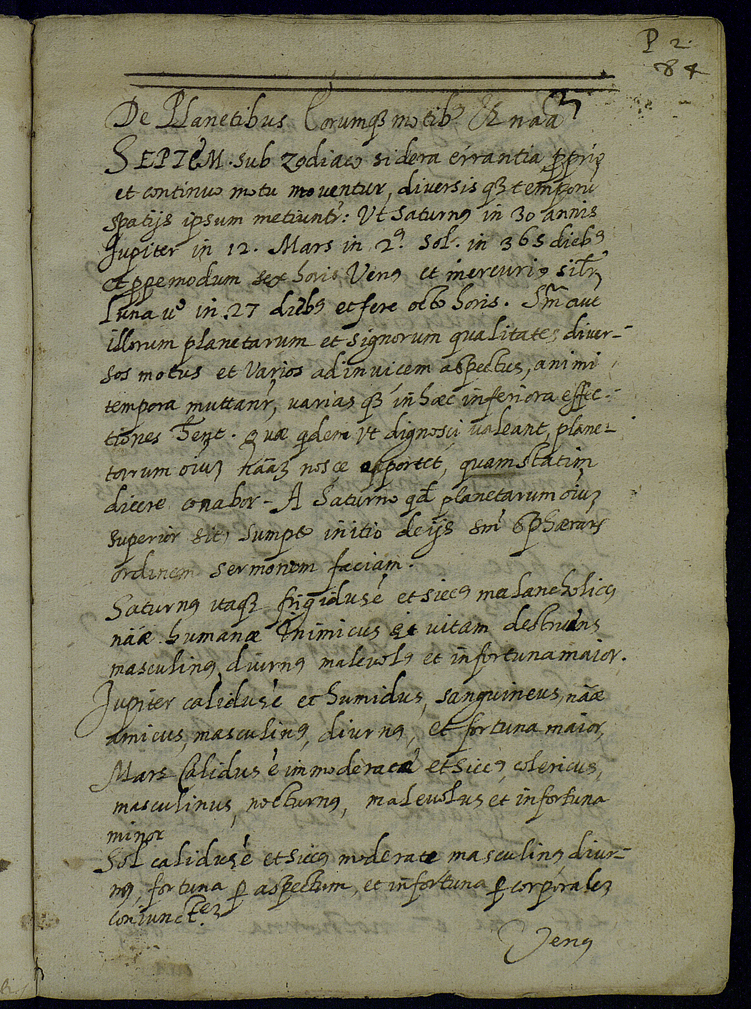 P 2.
84
De Planetibus Eorumq3 motib9 & naã
SEPTEM sub zodiaco sidera errantia ꝓprio
et continuo motu moventur, diversis q3 temporũ
spatijs ipsum metiunt': Vt Saturn9 in 30 annis
Jupiter in 12. Mars in 2. Sol. in 365 dieb9
et ꝓpemodum sex horis Ven9 et mercuri9 silr̃
Luna uº in 27 dieb9 et fere octo horis. Sm̃ aut
illorum planetarum et signorum qualitates diver-
sos motus et varios adinvicem aspectus, animi
tempora muttant', varias q3 in hæc inferiora effec-
tiones . quæ qdem vt dignosci valeant, plane-
tarum oiu3 nãã3 nosce opportet, quam statim
dicere conabor - A Saturno qd planetarum oiu3
superior sit, sumpto initio de ijs sm̃ sphærarũ
ordinem sermonem faciam.
Saturn9 itaq3 frigidus ẽ et sicc9 melancholic9
nãæ humanæ inimicus et vitam destruens
masculin9, diurn9 malevol9 et infortuna maior.
Jupiter calidus ẽ et humidus, sanguineus, nãæ
amicus, masculin9, diurn9, et fortuna maior,
Mars Calidus ẽ immoderate et sicc9, colericus,
masculinus, nocturn9, malevolus et infortuna
minor
Sol calidus ẽ et sicc9 moderate masculin9 diur-
n9, fortuna ꝑ aspectum, et infortuna ꝑ corporale3
coniunct
Ven9